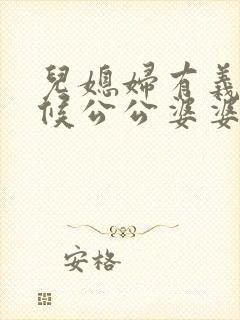 兒媳婦有義
候公公婆婆
安格